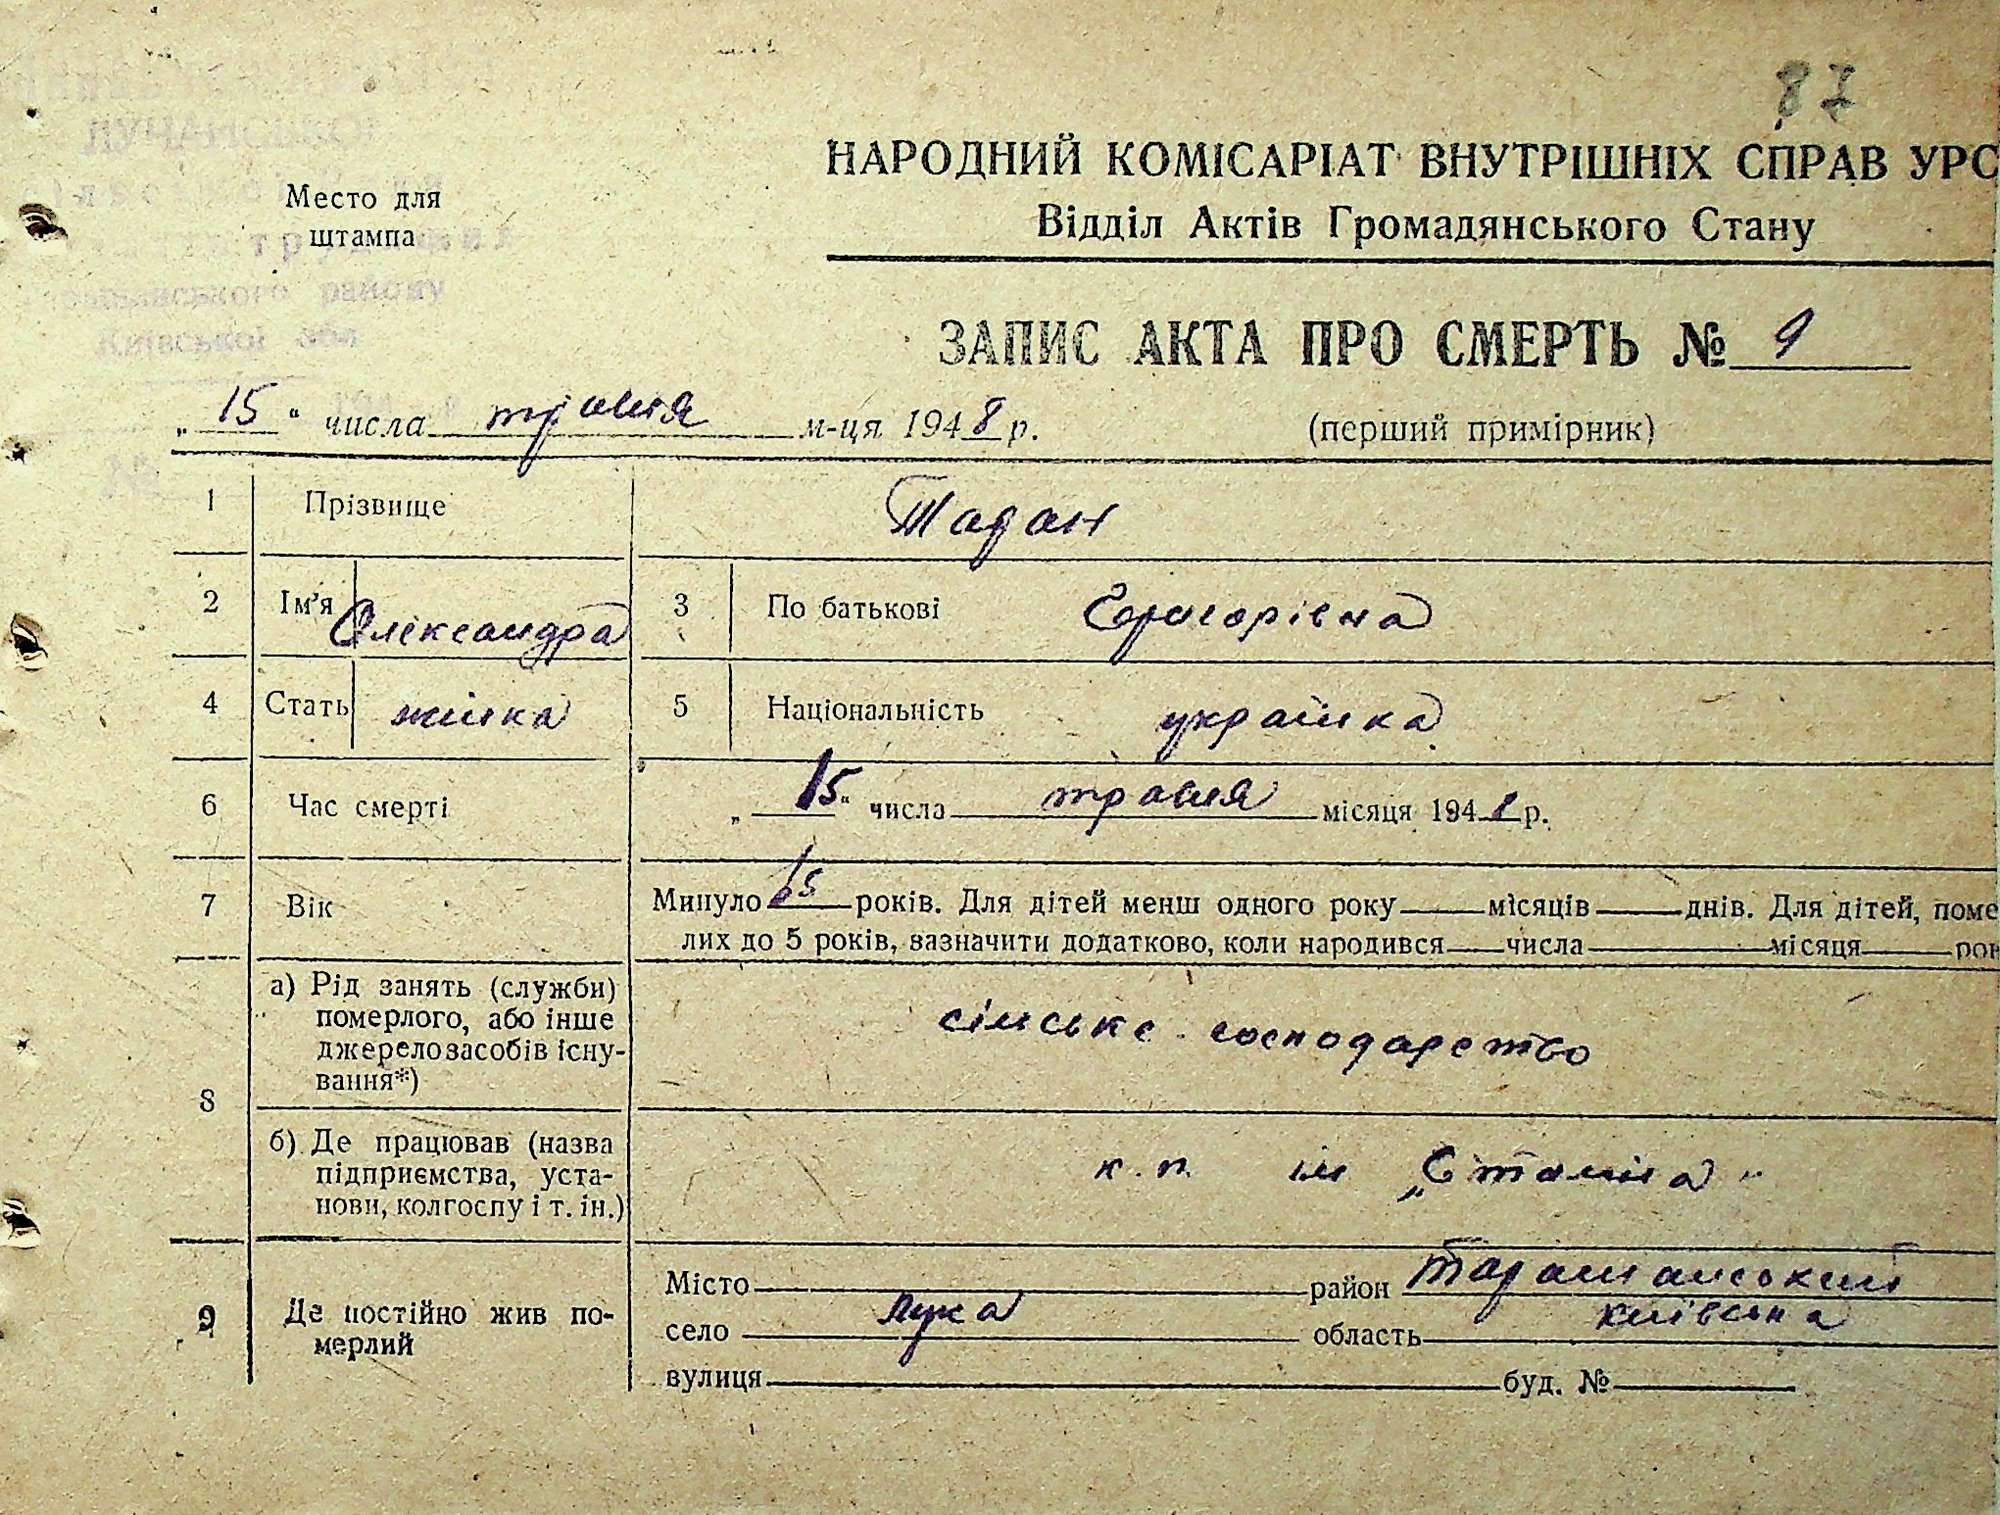 87
НАРОДНИЙ КОМІСАРІАТ ВНУТРІШНІХ СПРАВ УРС
Відділ Актів Громадянського Стану
Место для
штампа
району
Київської обл
ЗАПИС АКТА ПРО СМЕРТЬ № 9
„15“ числа травня м-ця 1948 р.
(перший примірник)
1 Прізвище Тадан
2 Ім’я Олександра 3 По батькові Григорівна
4 Стать жінка 5 Національність українка
6 Час смерті „15“ числа травня місяця 1948 р.
7 Вік Минуло 65 років. Для дітей менш одного року місяців днів. Для дітей, поме
лих до 5 років, зазначити додатково, коли народився числа місяця рок
8 а) Рід занять (служби)
померлого, або інше
джерело засобів існу-
вання*)
сільське господарство
б) Де працював (назва
підприємства, уста-
нови, колгоспу і т. ін.)
к. п. ім „Сталіна“
9 Де постійно жив по-
мерлий
Місто район Таращанський
село Лука область Київська
вулиця буд. №